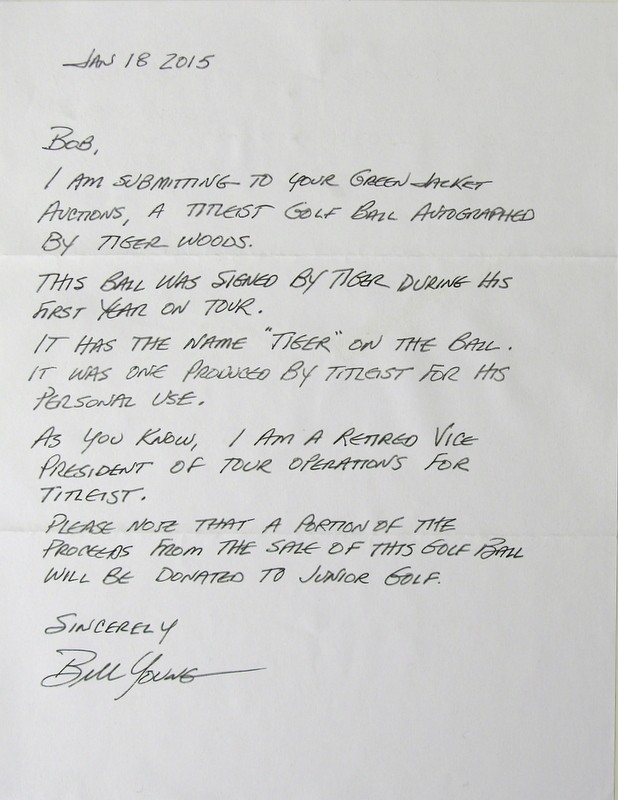 JAN 18 2015
BOB,
I AM SUBMITTING TO YOUR GREEN JACKET
AUCTIONS, A TITLEIST GOLF BALL AUTOGRAPHED
BY TIGER WOODS.
THIS BALL WAS SIGNED BY TIGER DURING HIS
FIRST YEAR ON TOUR.
IT HAS THE NAME "TIGER" ON THE BALL.
IT WAS ONE PRODUCED BY TITLEIST FOR HIS
PERSONAL USE.
AS YOU KNOW, I AM A RETIRED VICE
PRESIDENT OF TOUR OPERATIONS FOR
TITLEIST.
PLEASE NOTE THAT A PORTION OF THE
PROCEEDS FROM THE SALE OF THIS GOLF BALL
WILL BE DONATED TO JUNIOR GOLF.
SINCERELY
BILL YOUNG